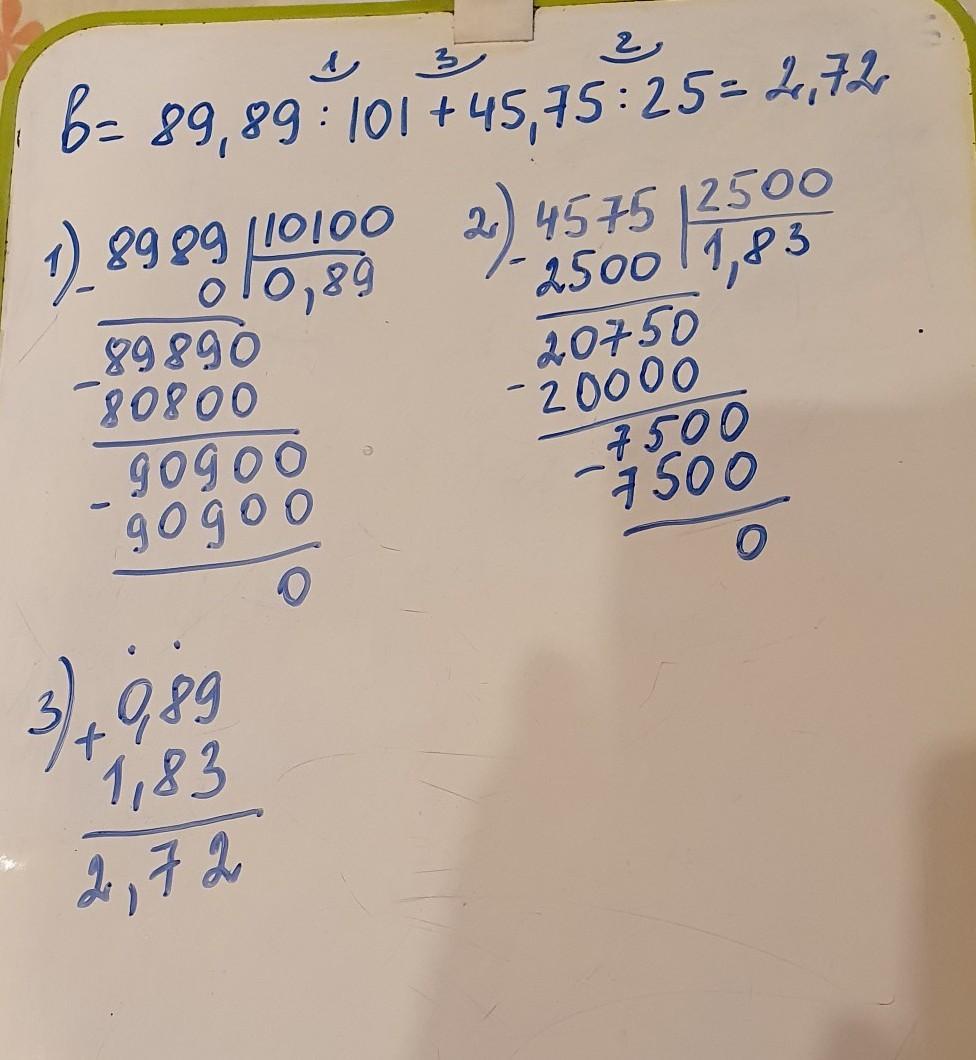 1 3 2
b= 89,89:101+45,75:25=2,72
1) 8989 10100
- 0 0,89
89890
- 80800
90900
- 90900
0
2) 4575 2500
- 2500 1,83
20750
- 20000
7500
- 7500
0
3) 0,89
+ 1,83
2,72